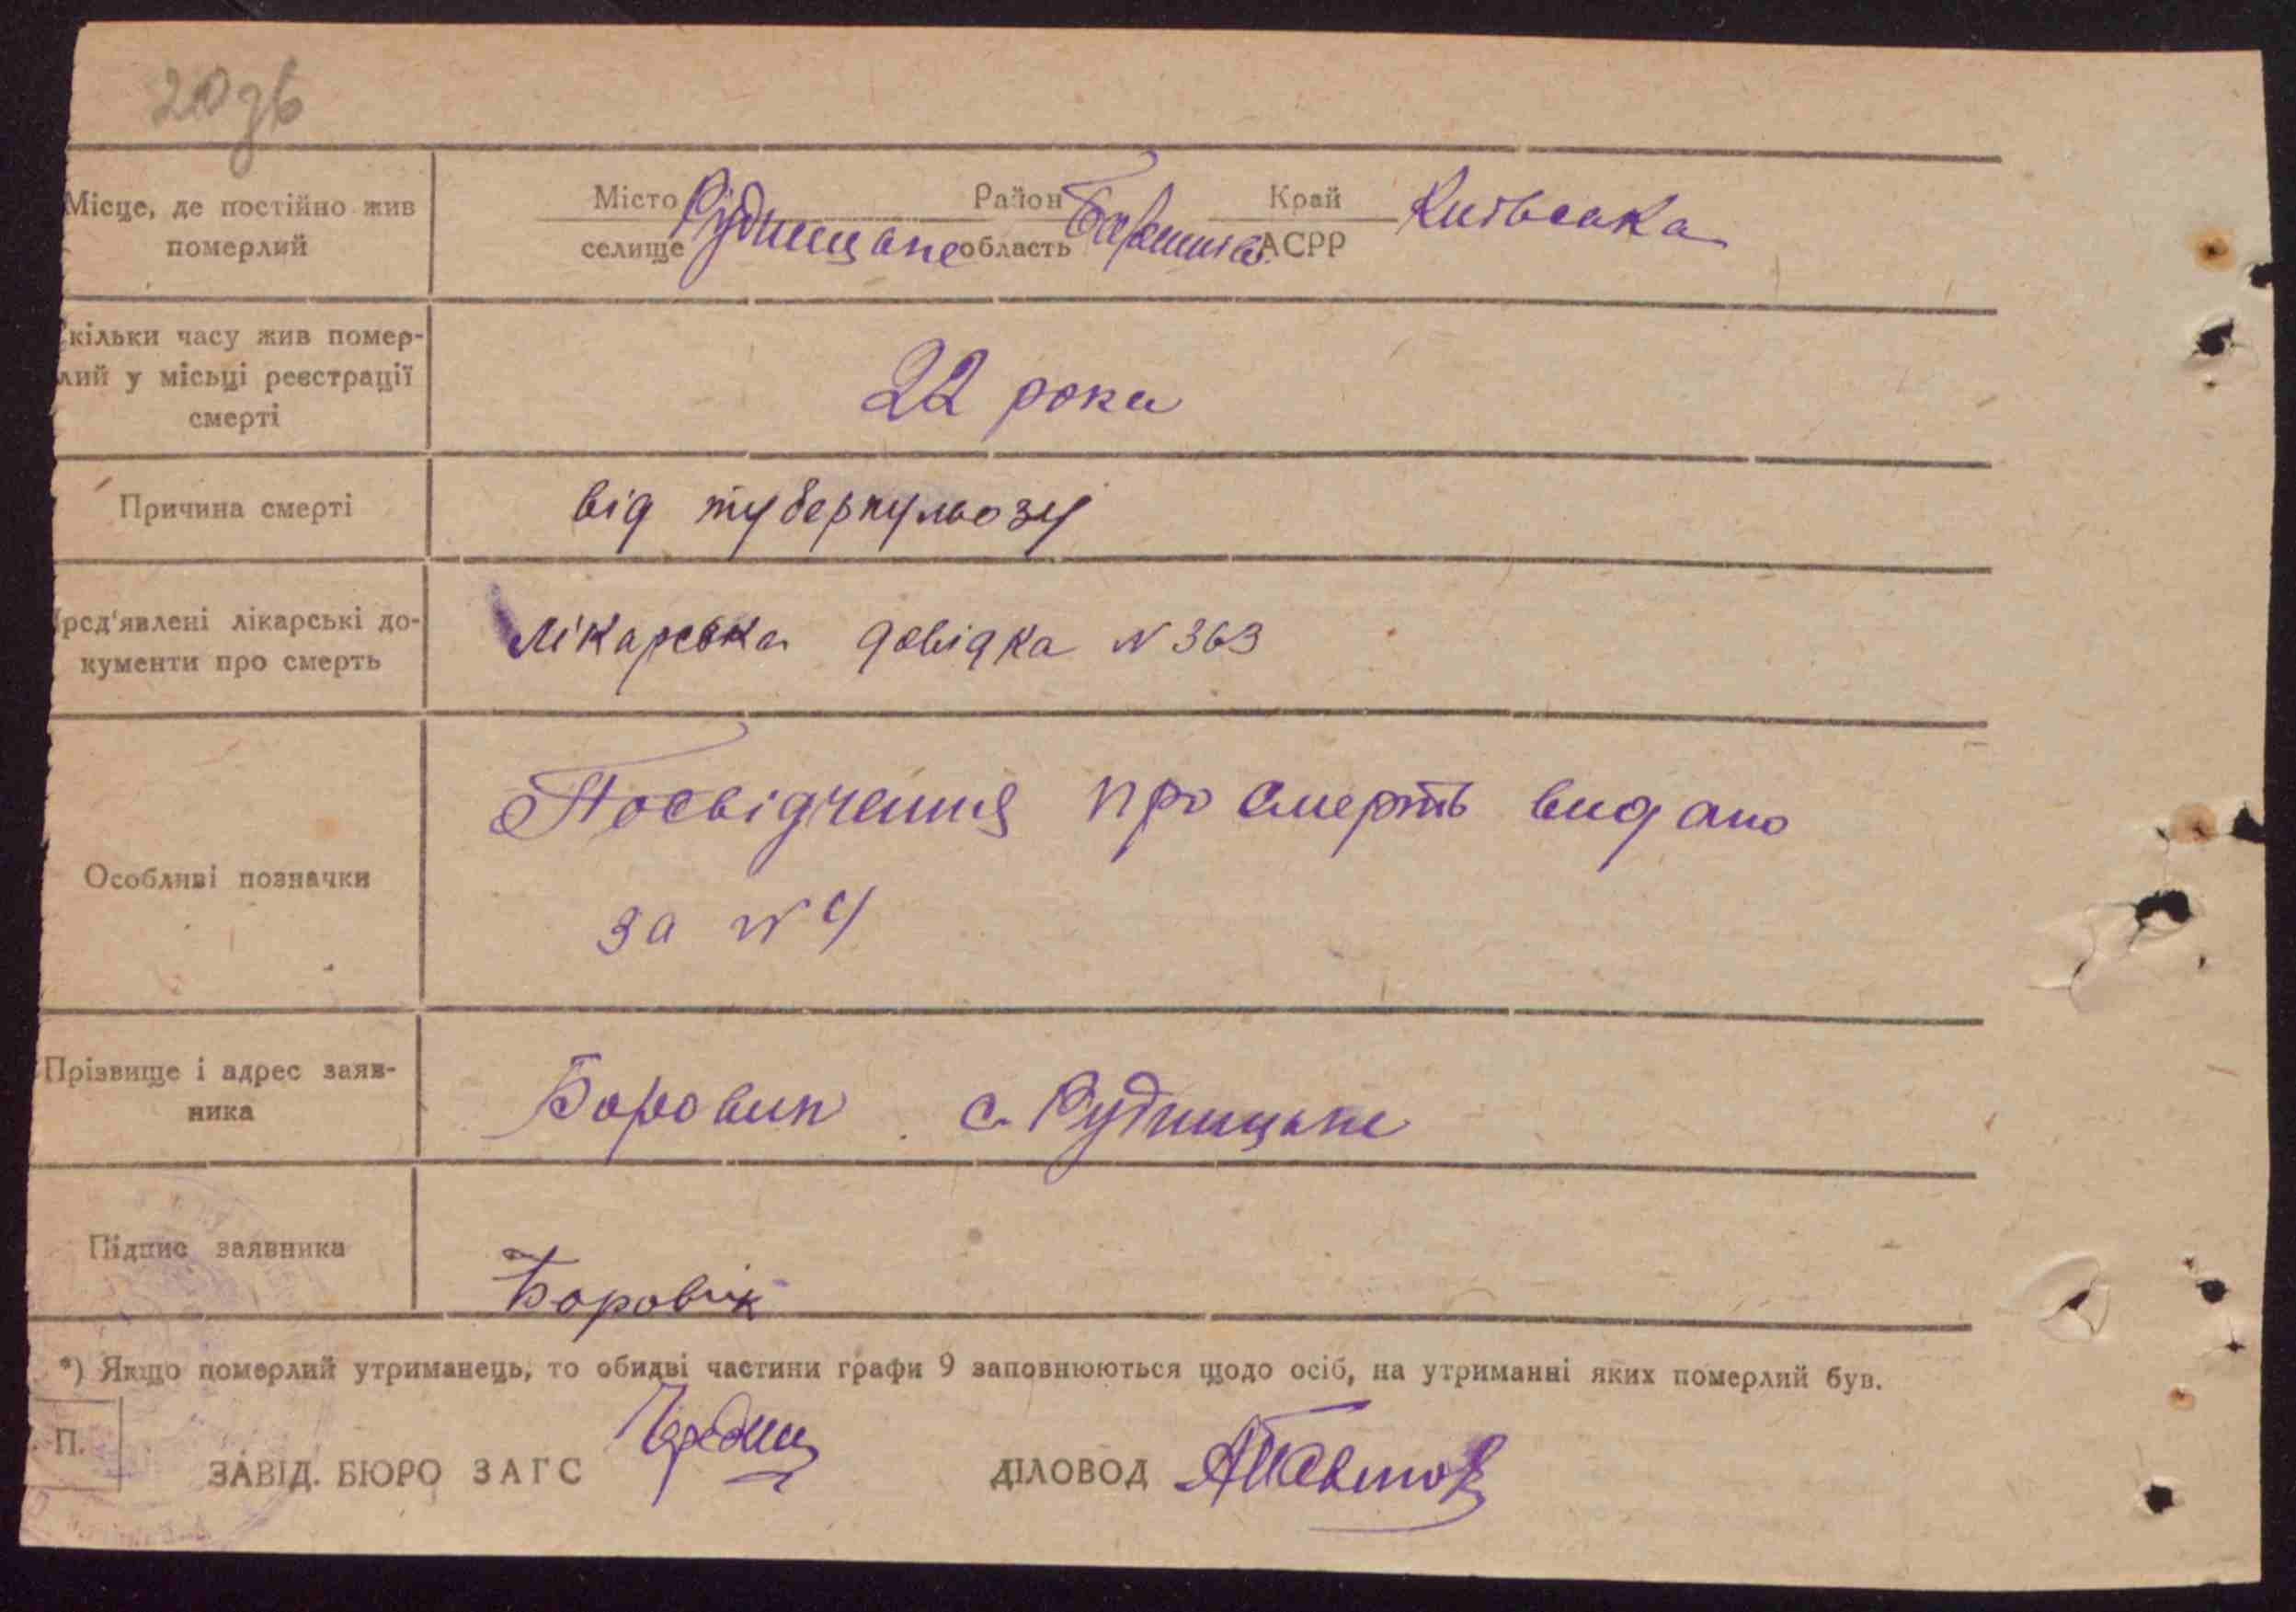 20 зв
Місце, де постійно жив
померлий
Місто
селище
Рудницьке
Район
область
Баришів.
Край
АСРР
Київська
кільки часу жив помер-
лий у місьці реєстрації
смерті
22 роки
Причина смерті
від туберкульозу
ред'явлені лікарські до-
кументи про смерть
Лікарська довідка N 363
Особливі позначки
Посвідчення про смерть видано
за N 4
Прізвище і адрес заяв-
ника
Боровик с. Рудницьке
Підпис заявника
Боровик
*) Якщо померлий утриманець, то обидві частини графи 9 заповнюються щодо осіб, на утриманні яких померлий був.
П.
ЗАВІД. БЮРО ЗАГС
ДІЛОВОД